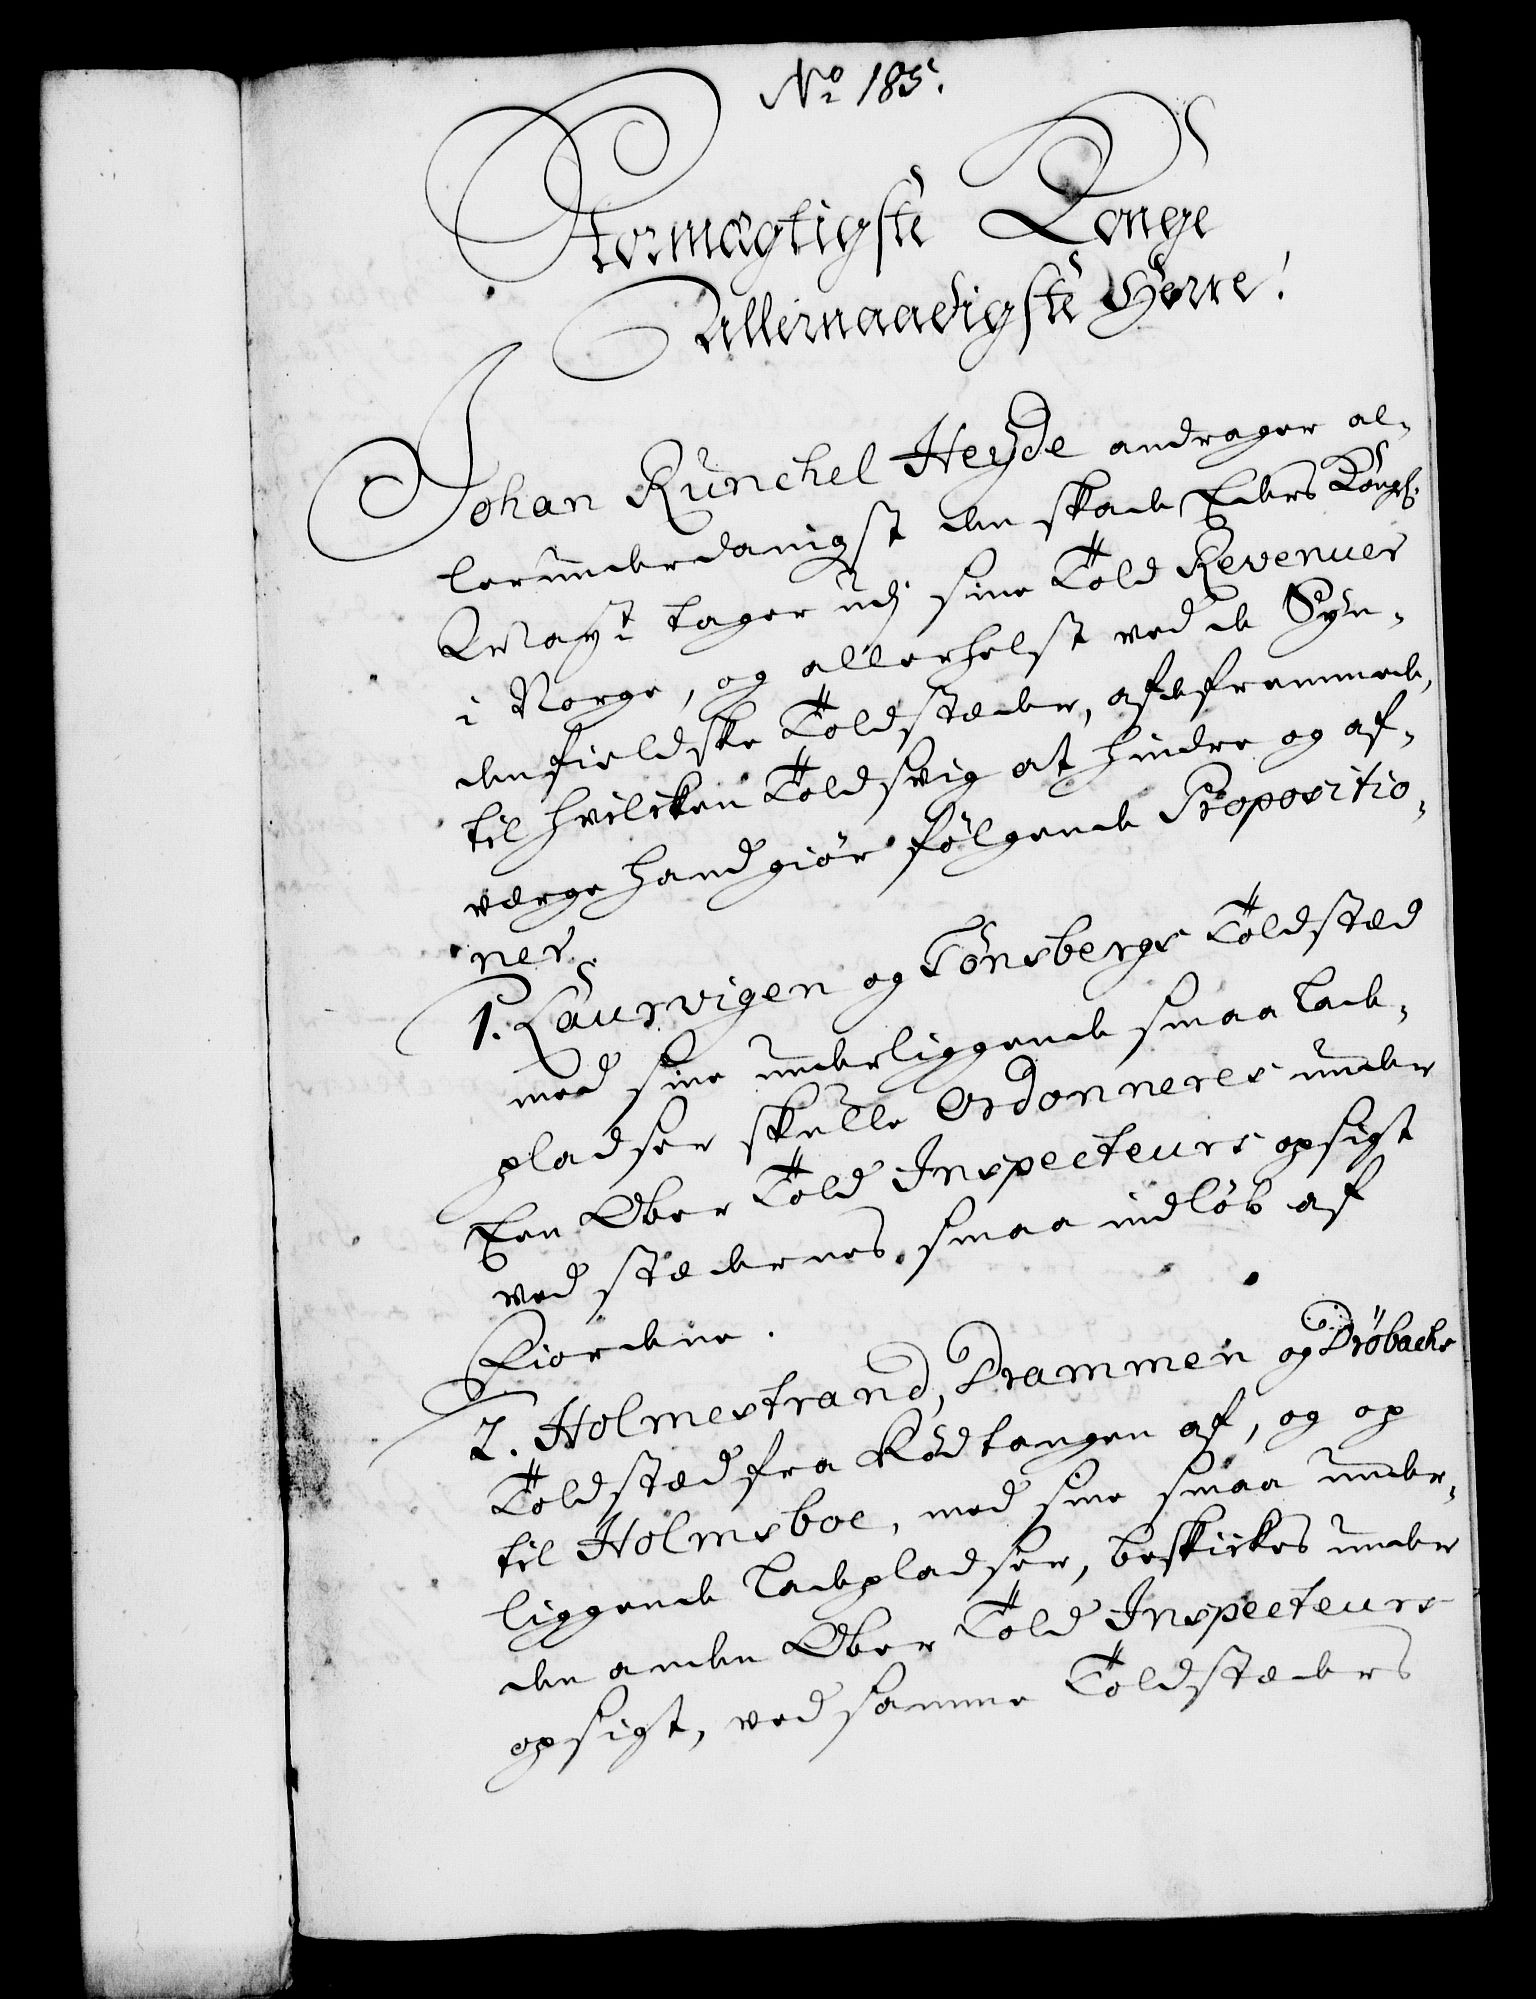 No 185.
Stormægtigste Konge
Allernaadigste Herre!
Johan Runchel Heyde andrager al-
lerunderdanigst den skade Eders Kongl:
May:t tager udj sine Told Revenuer
i Norge, og allerhelst ved de Syn-
denfieldske Toldstæder, af de fremmede,
til hvilcken Toldsvig at hindre og af-
verge hand giør følgende Propositio-
ner.
1. Laurvigen og Tønsbergs Toldstæd
med sine underliggende smaa Lade-
pladser skulle Ordonneres under
Een Ober Told Inspecteurs opsigt
ved stædernes smaa indløb af
Fiordene.
2. Holmestrand, Drammen og Drøbachs
Toldstæd fra Rødtangen af, og op
til Holmsboe, med sine smaa under-
liggende Ladepladser, beskickes under
den anden Ober Told Inspecteurs
opsigt, ved samme Toldstæders